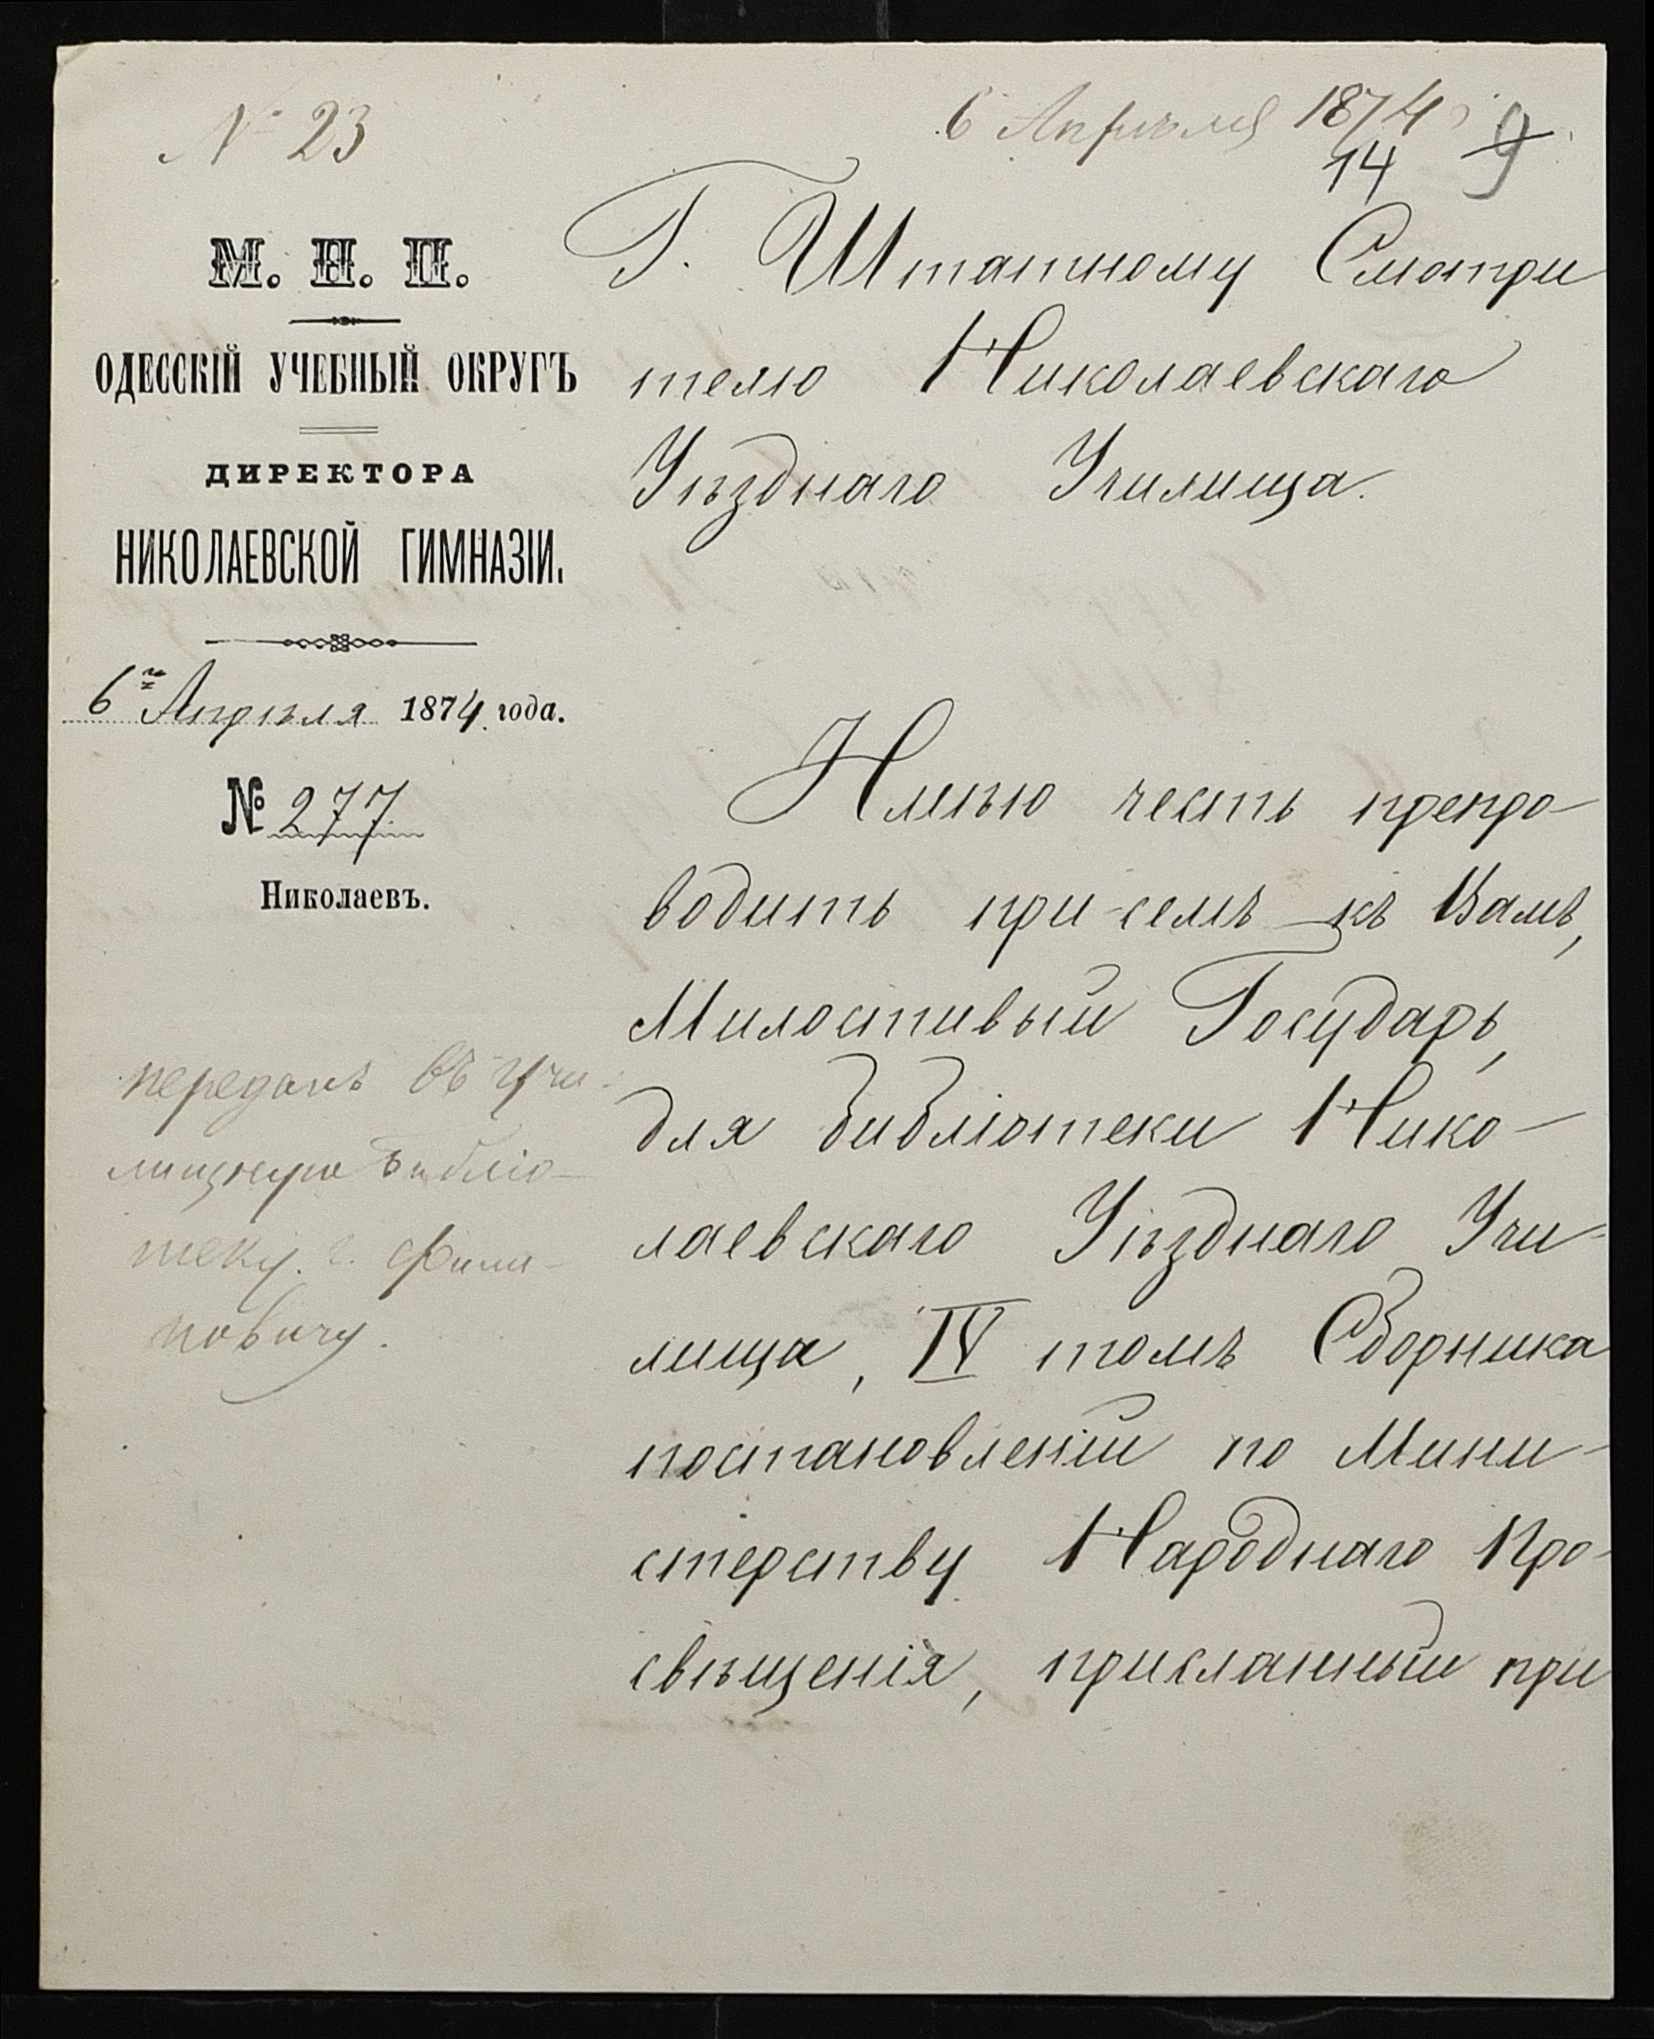 № 23
6 Апрѣля 1874
14 9
М. Н. П.
ОДЕССКІЙ УЧЕБНЫЙ ОКРУГЪ
ДИРЕКТОРА
НИКОЛАЕВСКОЙ ГИМНАЗІИ.
6го Апрѣля 1874 года.
№ 277
Николаевъ.
передать въ учи-
лищную библіо-
теку. г. Фили-
повичу.
Г. Штатному Смотри
телю Николаевскаго
Уѣзднаго Училища.
Имѣю честь препро-
водить при семъ къ Вамъ,
Милостивый Государь,
для библіотеки Нико-
лаевскаго Уѣзднаго Учи-
лища, IV томъ Сборника
постановленій по Мини-
стерству Народнаго Про-
свѣщенія, присланный при